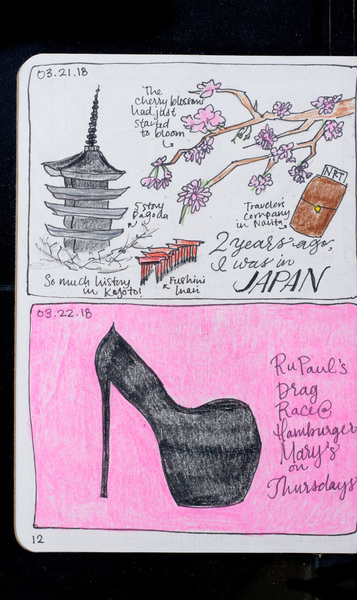 03.21.18
The
cherry blossoms
had just
started
to bloom
NRT
5 story
Pagoda
Traveler's
Company
in Narita
2 years ago,
I was in
JAPAN
So much history
in Kyoto!
Fushimi
Inari
03.22.18
RuPaul's
Drag
Race @
Hamburger
Mary's
on
Thursdays
12